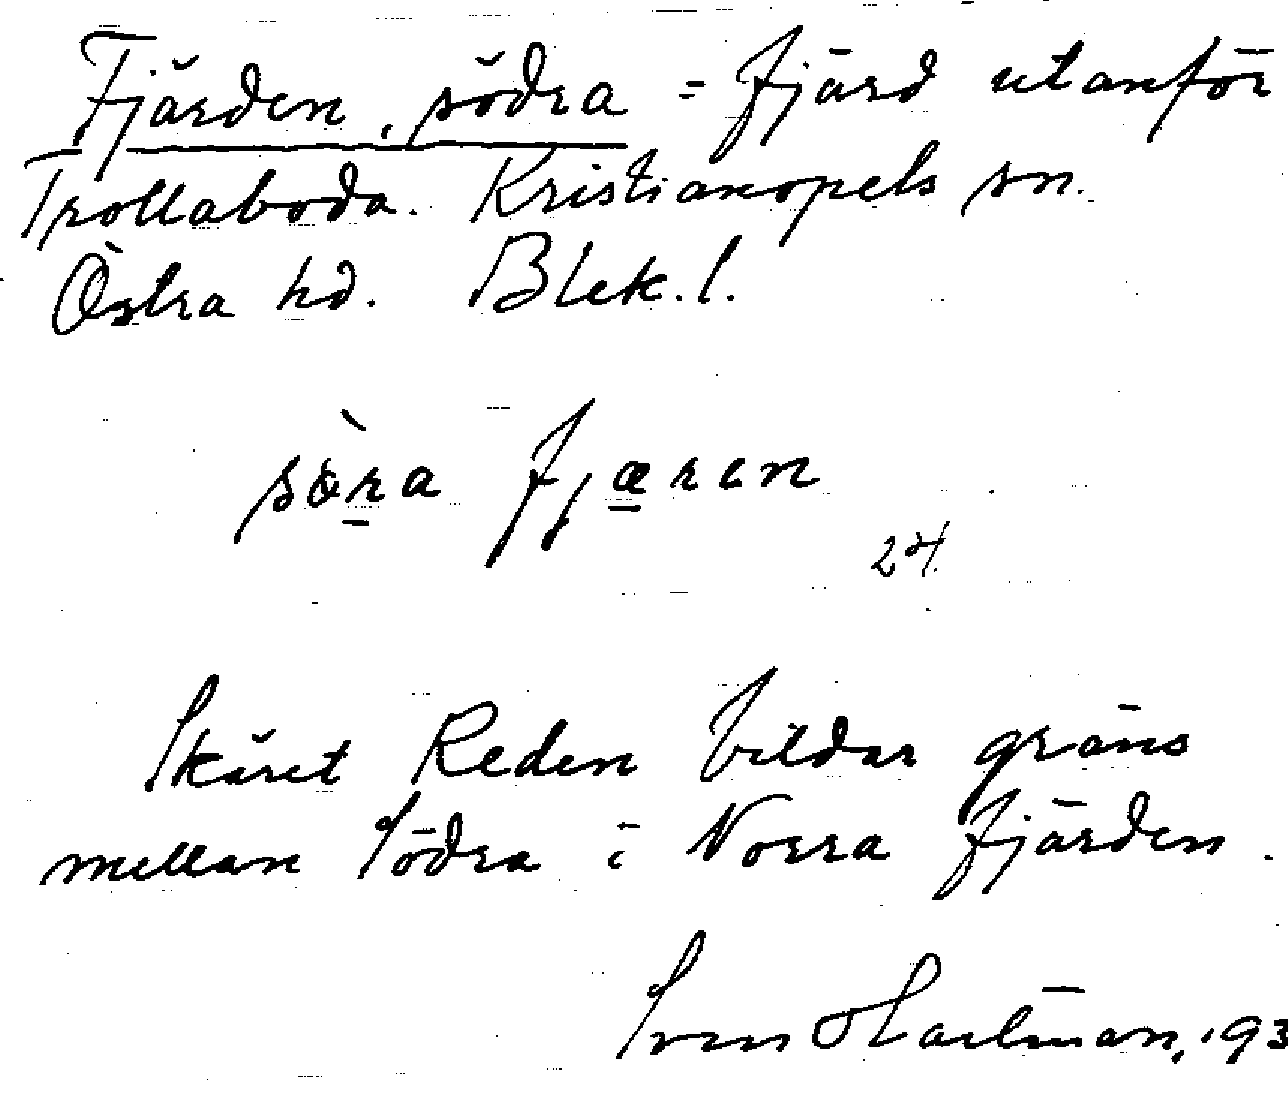 Fjärden, södra = fjärd utanför
Trollaboda. Kristianopels sn.
Östra hd. Blek. l.
sö̀ra fjæran
24
Skäret Reden bildar gräns
mellan Södra & Norra fjärden.
Sven Hartman, 193